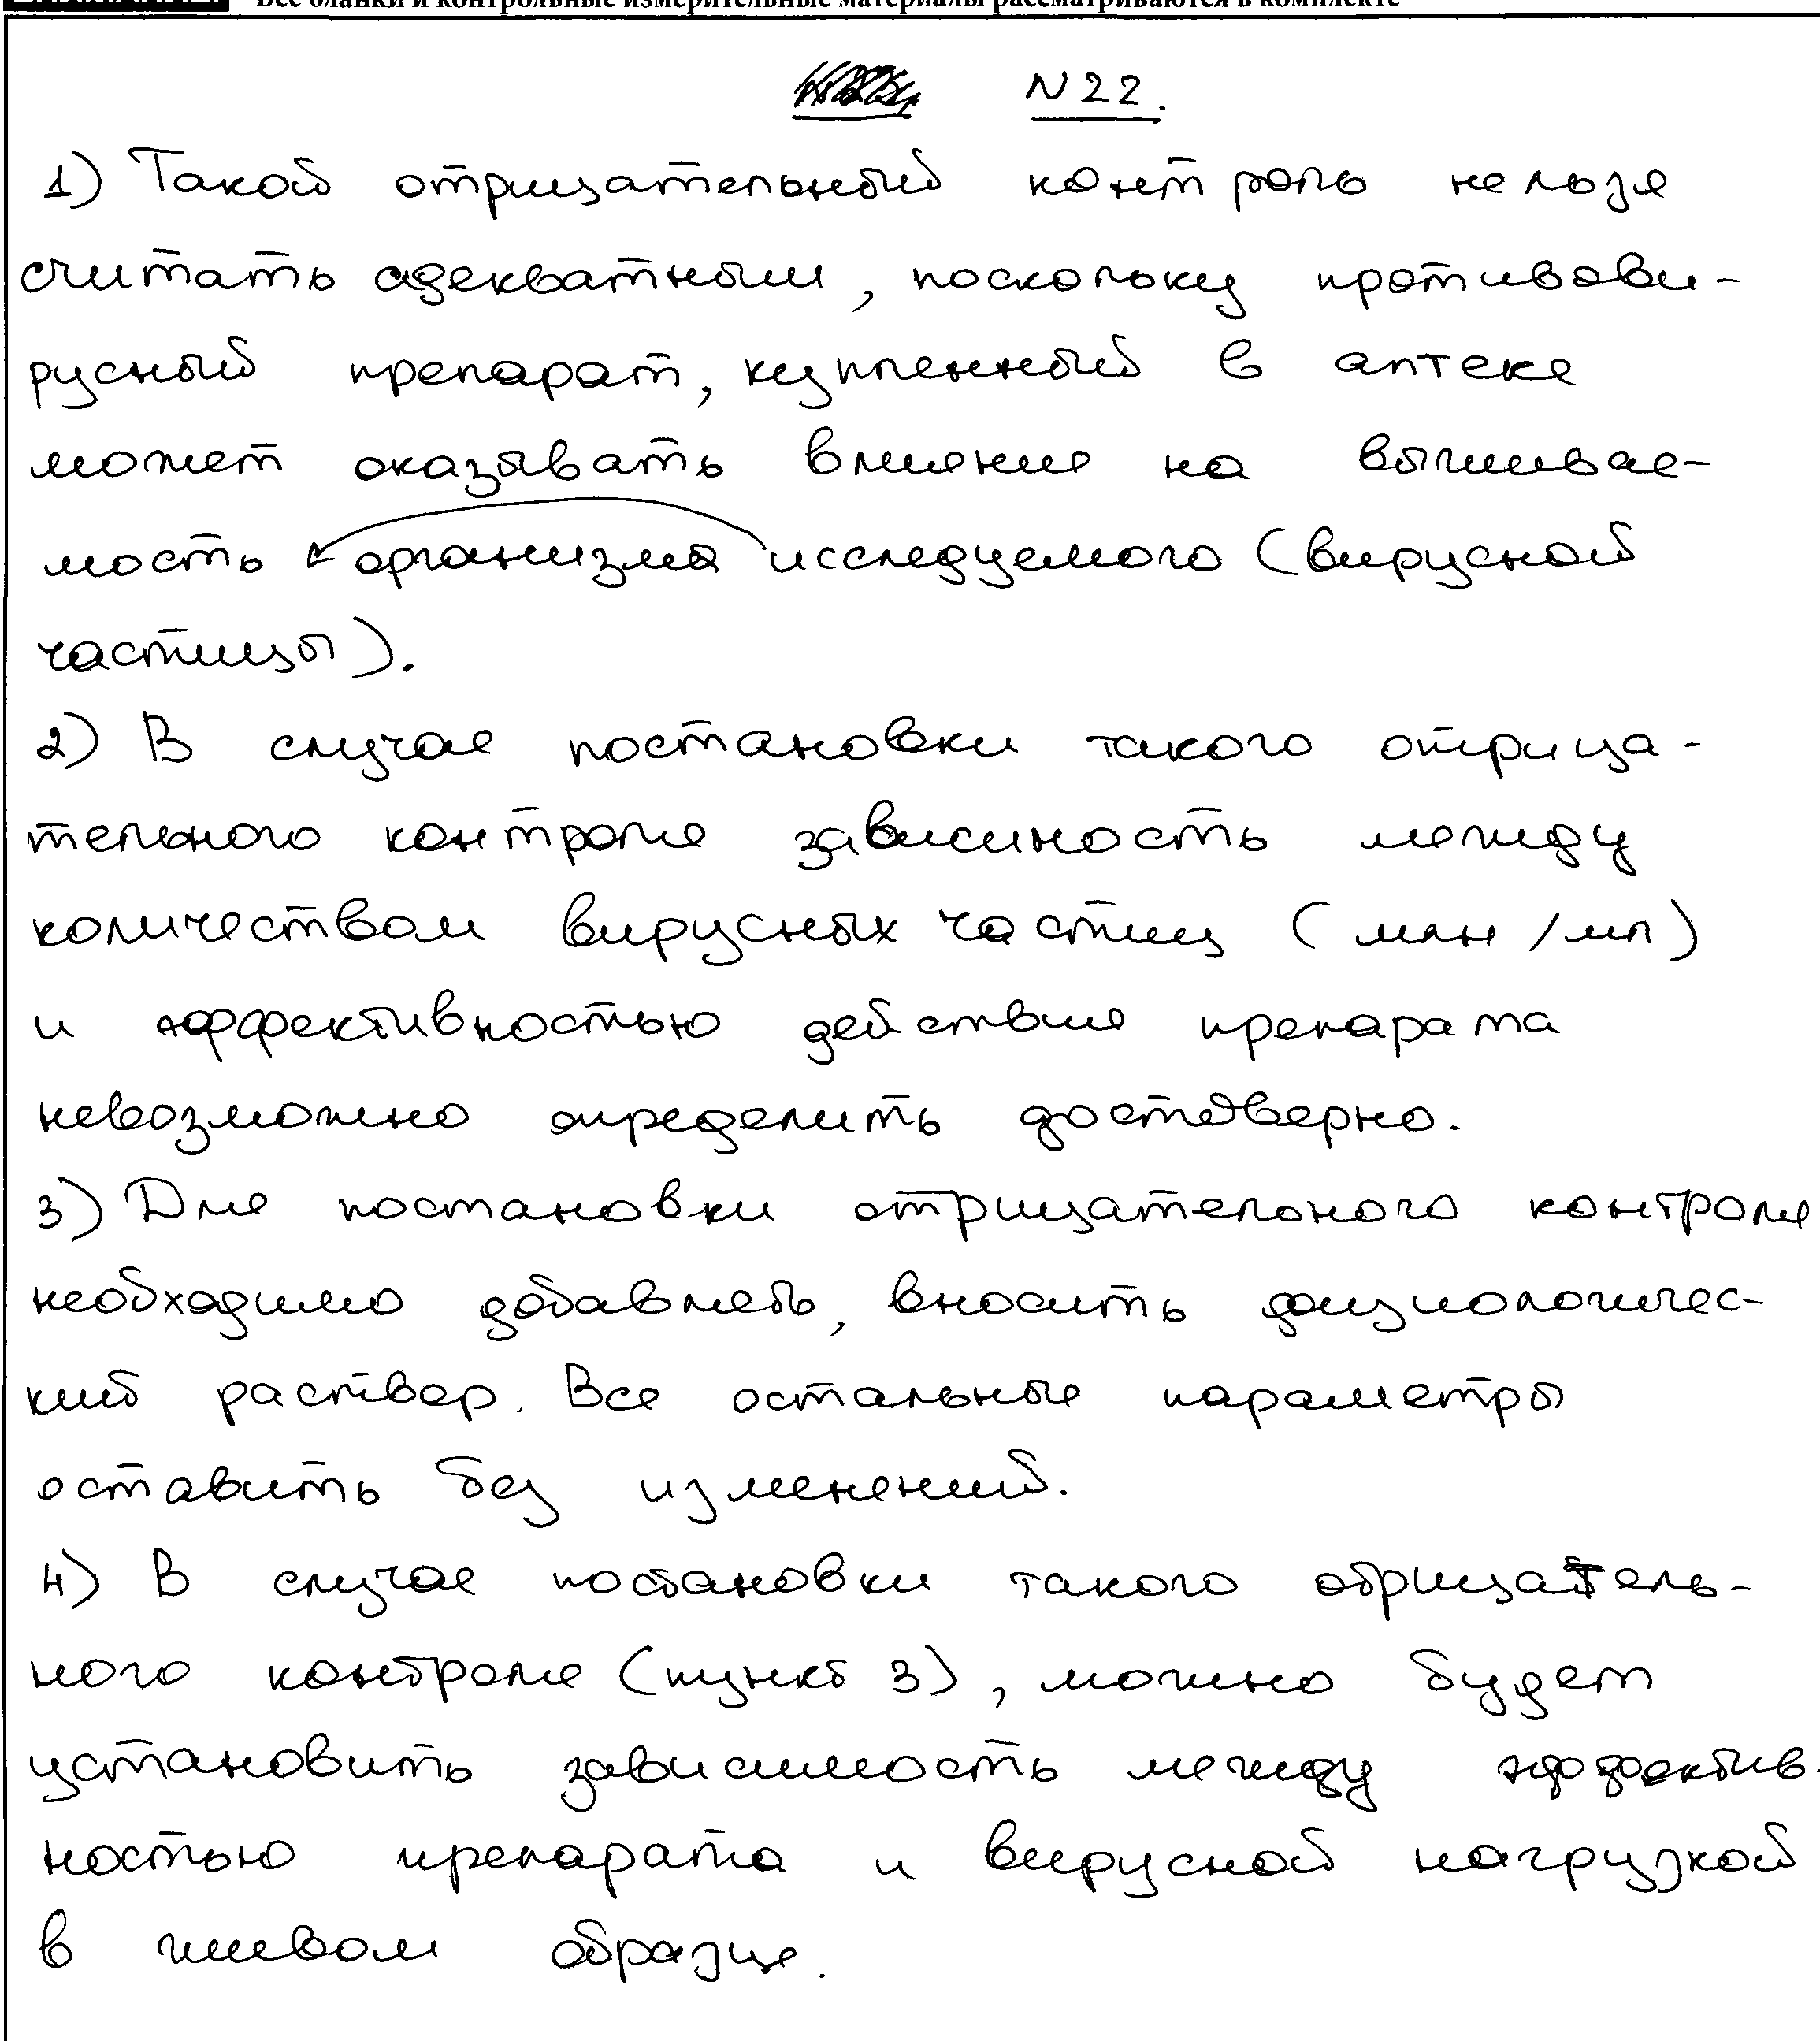 Все бланки и контрольные измерительные материалы рассматриваются в комплекте
N 22.
1) Такой отрицательный контроль нельзя
считать адекватным, поскольку противови-
русный препарат, купленный в аптеке
может оказывать влияние на выживае-
мость организма исследуемого (вирусной
частицы).
2) В случае постановки такого отрица-
тельного контроля зависимость между
количеством вирусных частиц (млн/мл)
и эффективностью действия препарата
невозможно определить достоверно.
3) Для постановки отрицательного контроля
необходимо добавлять, вносить физиологичес-
кий раствор. Все остальные параметры
оставить без изменений.
4) В случае постановки такого отрицатель-
ного контроля (пункт 3), можно будет
установить зависимость между эффектив-
ностью препарата и вирусной нагрузкой
в живом образце.